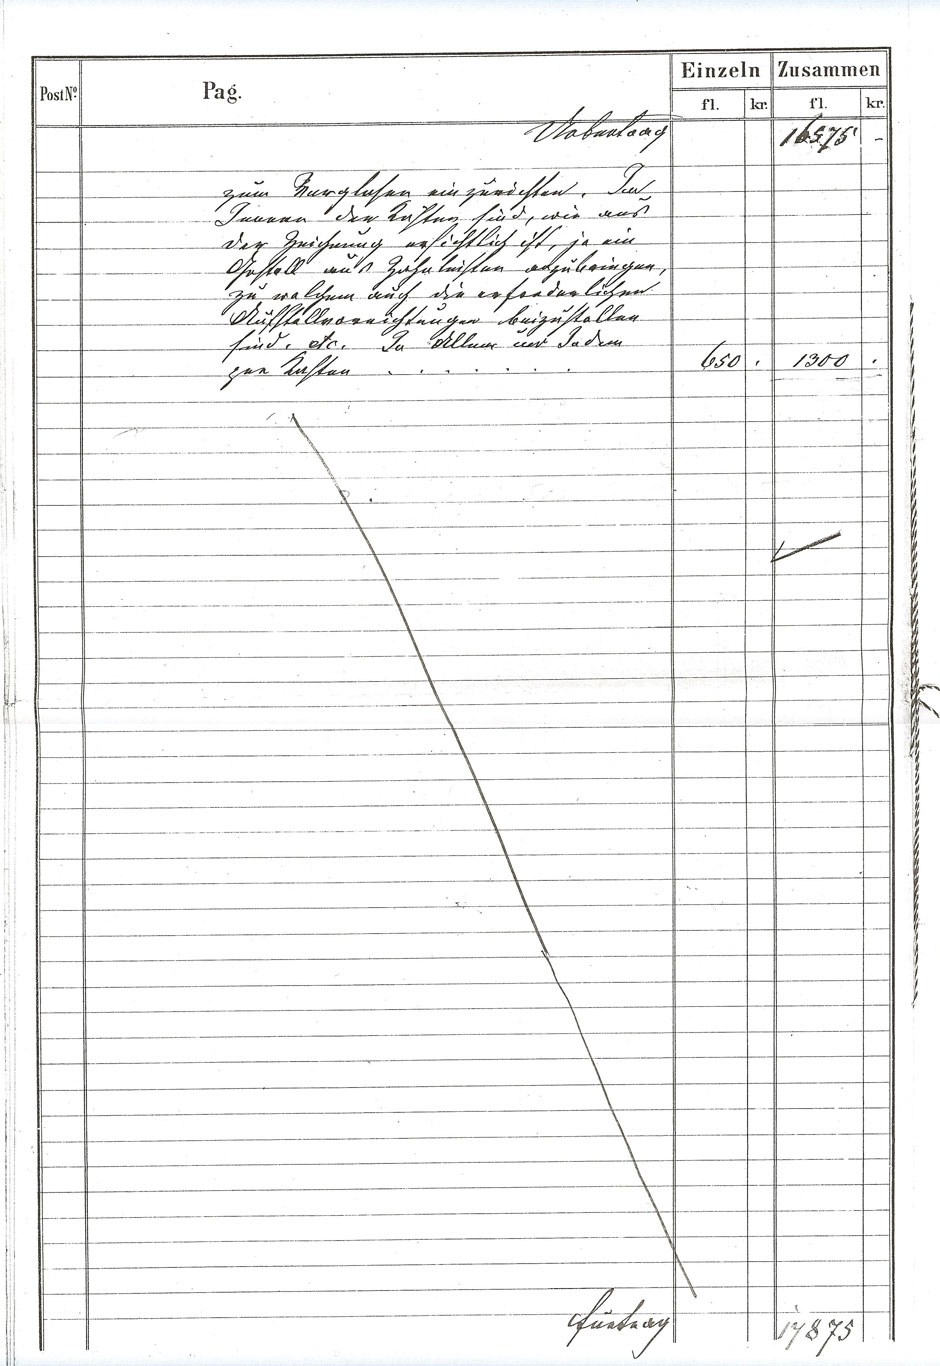 Post No. Pag. Einzeln Zusammen
fl. kr. fl. kr.
Uebertrag 16575 -
zum Verglasen einzurichten. Im
Innern der Kästen sind, wie aus
der Zeichnung ersichtlich ist, je ein
Gestell aus Zahnleisten anzubringen,
zu welchem auch die erforderlichen
Aufstellvorrichtungen beizustellen
sind. etc. In Allem und Jedem
per Kasten . . . . . . . 650 . 1300 .
Fürtrag 17875